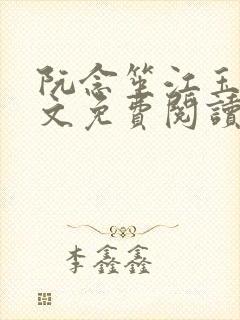 阮念笙江玉
文免費閱讀
李鑫鑫